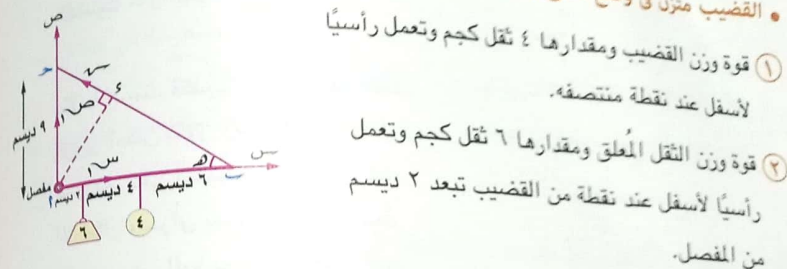 • القضيب متزن فى
① قوة وزن القضيب ومقدارها ٤ ثقل كجم وتعمل رأسيًا
لأسفل عند نقطة منتصفه.
② قوة وزن الثقل المُعلق ومقدارها ٦ ثقل كجم وتعمل
رأسيًا لأسفل عند نقطة من القضيب تبعد ٢ ديسم
من المفصل.
ص
ح
س
ء
ص١
٩ ديسم
هـ
س
س١
ب
مفصل
ا
٢ ديسم
٤ ديسم
٦ ديسم
٦
٤